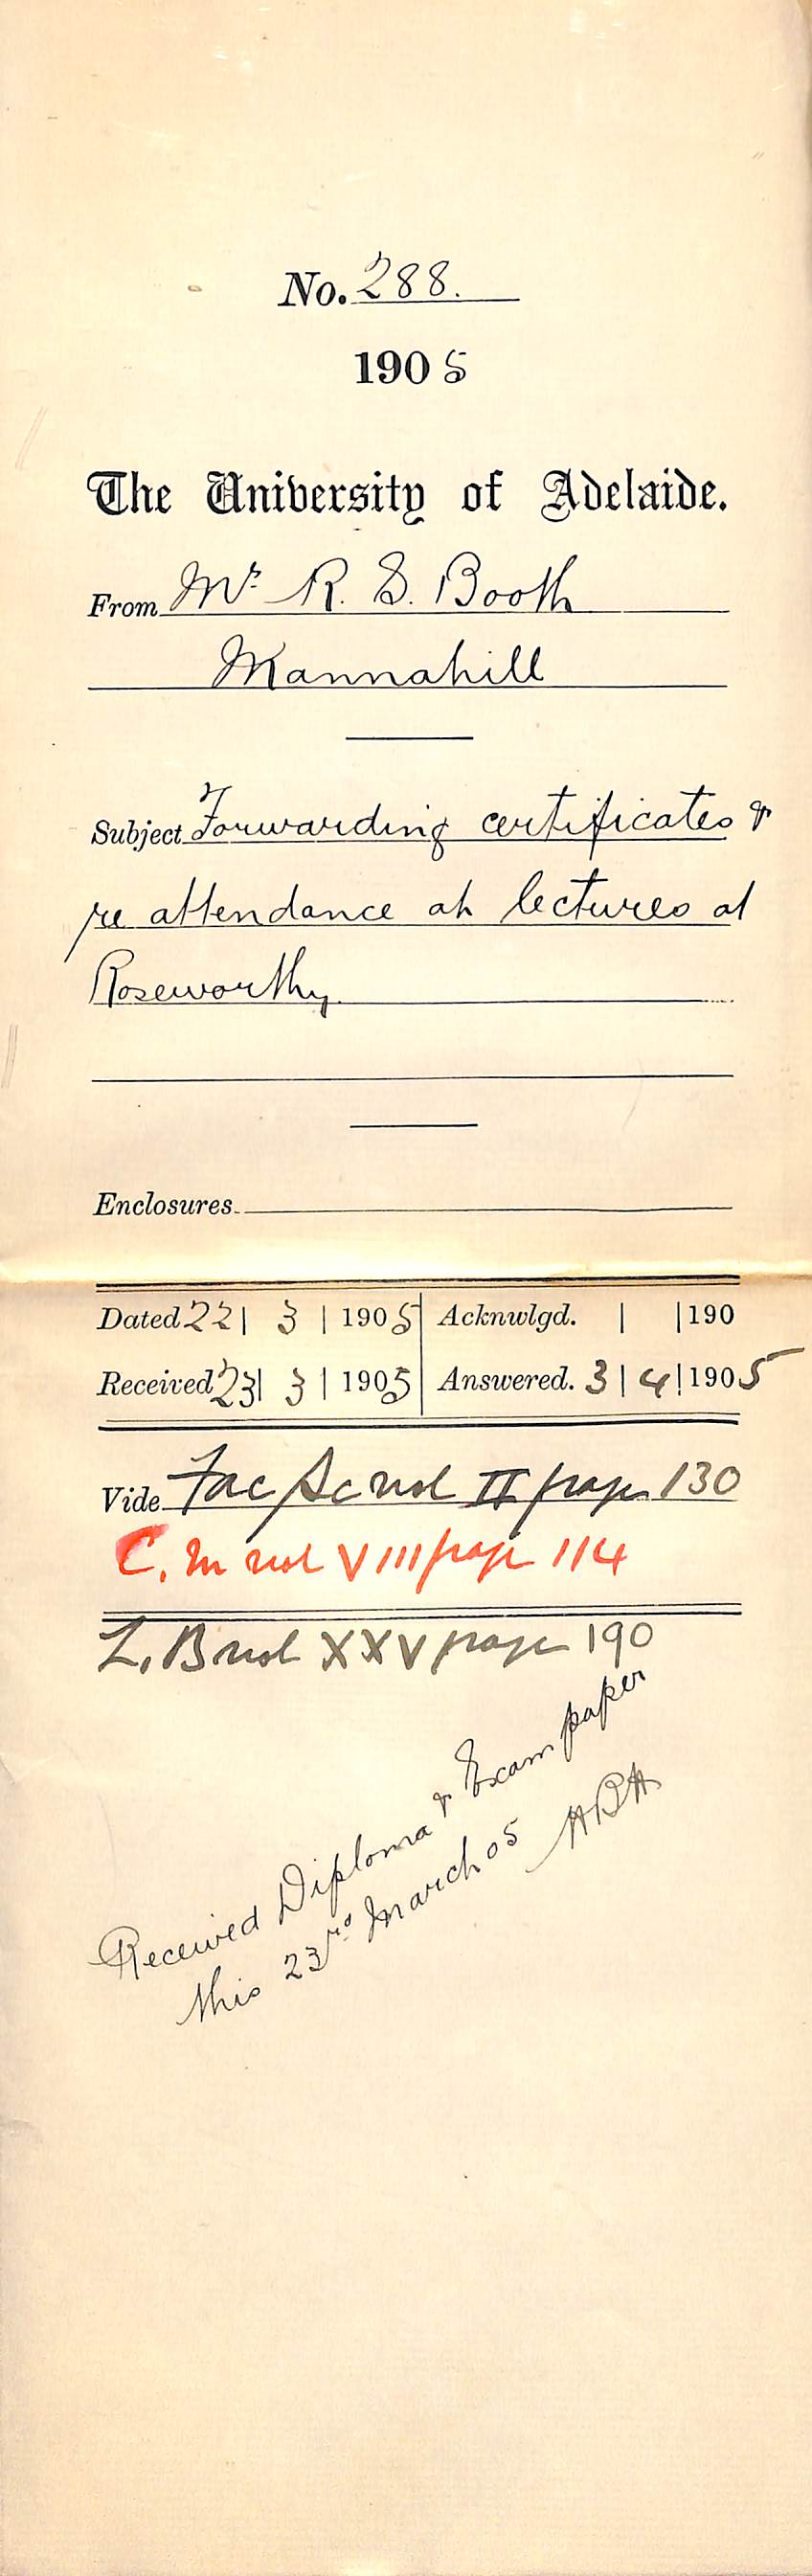 No. 288.
1905
The University of Adelaide.
From Mr. R. S. Booth
Mannahill
Subject Forwarding certificates &
re attendance at lectures at
Roseworthy
Enclosures
Dated 22 | 3 | 1905 Acknwlgd. | | 190
Received 23 | 3 | 1905 Answered. 3 | 4 | 1905
Vide Fac Sc vol II page 130
C. M vol VIII page 114
L. B vol XXV page 190
Received Diploma & Exam paper
this 23rd March 05